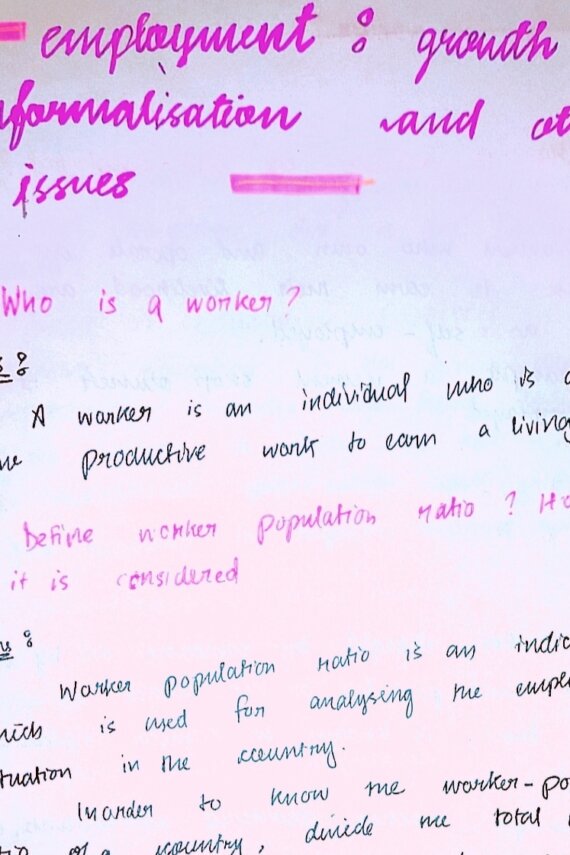 employment : growth
informalisation and ot
issues
Who is a worker?
s :
A worker is an individual who is
me productive work to earn a living
Define worker population ratio ? Ho
it is considered
ns :
Worker population ratio is an indic
hich is used for analysing the emplo
tuation in the ccountry.
Inorder to know the worker-po
of a country, divide the total